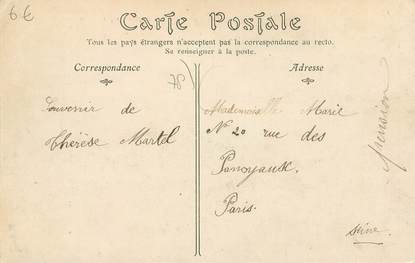 6€
Carte Postale
Tous les pays étrangers n'acceptent pas la correspondance au recto.
Se renseigner à la poste.
Correspondance
Adresse
Souvenir de
Thérèse Martel
Mademoiselle Marie
N° 20 rue des
Panoyaux.
Paris.
Seine.
pension